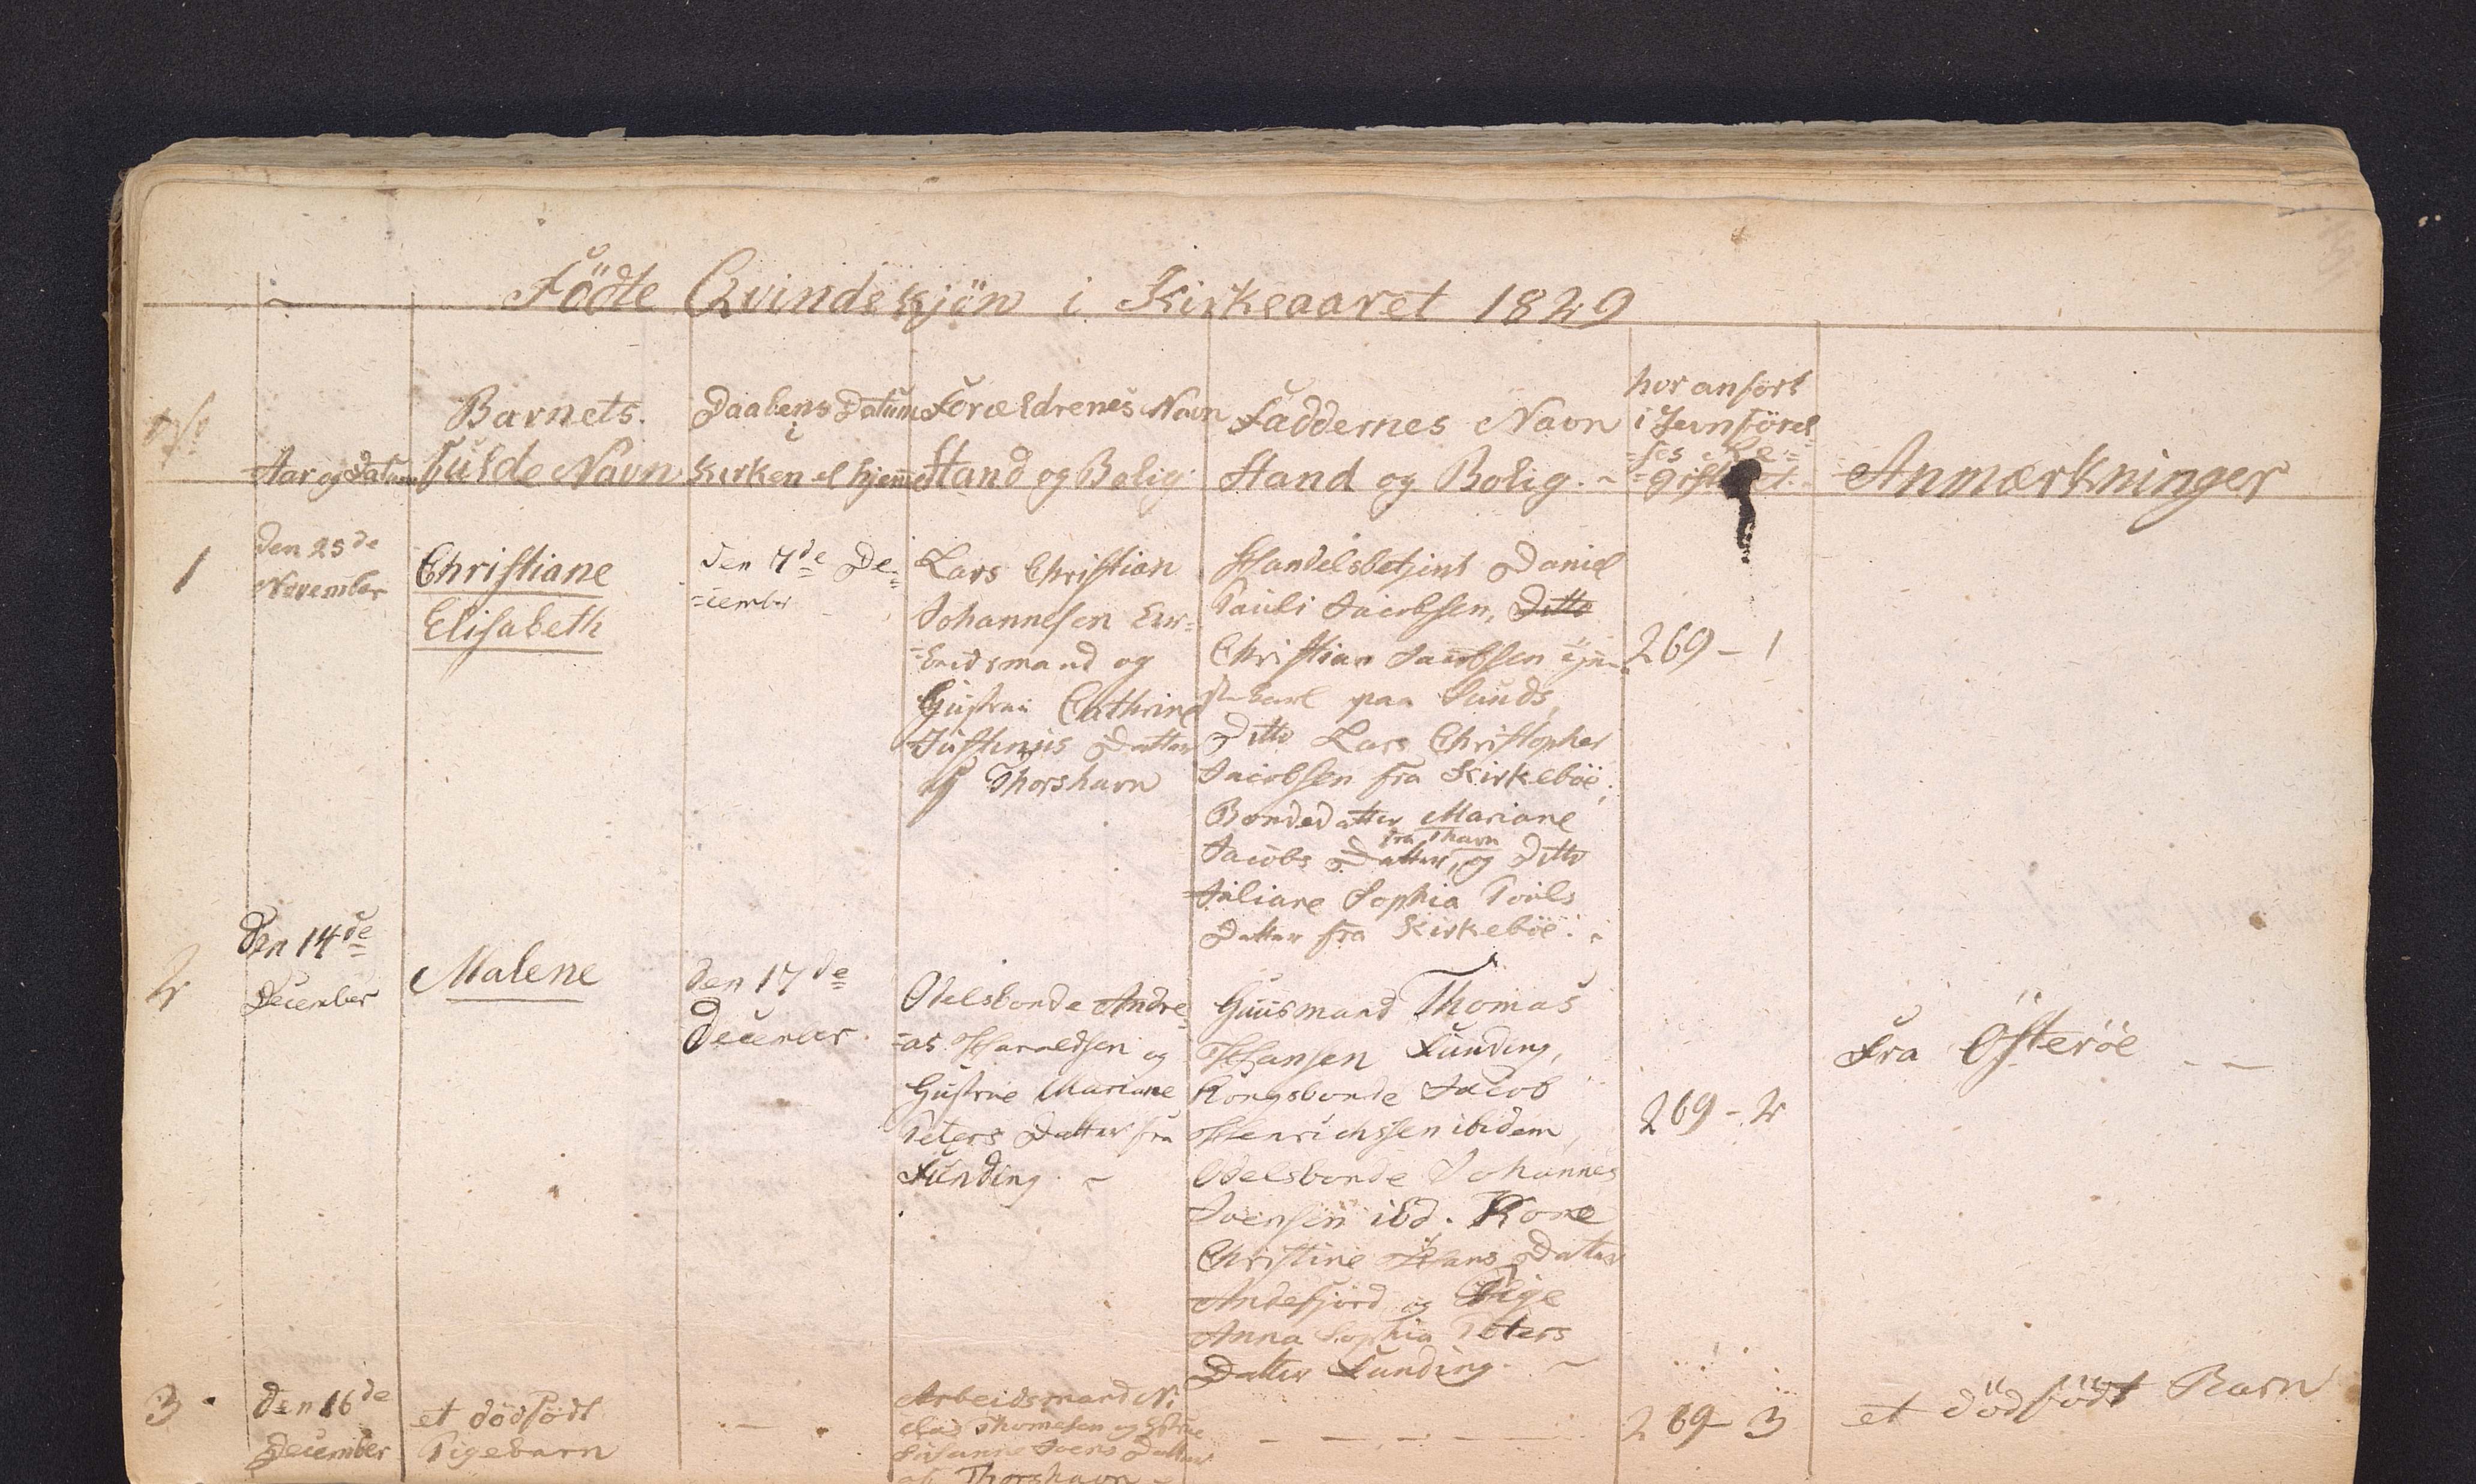 Födte Qvindekjön i Kirkeaaret 1829
No
Aar og Datum
Barnets
fulde Navn
Daabens Datum
i
Kirken el hjemme
Forældrenes Navn
Stand og Bolig
Faddernes Navn
Stand og Bolig.
hvor anfört
i Jevnförel=
=ses Re=
=gistret
Anmærkninger
1
den 25de
November
Christiane
Elisabeth
den 7de De=
=cembr
Lars Christian
Johannesen
og
Hustrue Cathrine
Datter
af Thorshavn
Handelsbetjent Daniel
Pauli Jacobsen, Ditto
Christian Jacobsen
paa Sunds,
Ditto Lars Christopher
Jacobsen fra Kirkeböe,
Bondedatter Mariane
fra Thavn
Jacobs Datter, og Ditto
Juliane Sophia Pouls
Datter fra Kirkeböe.
269 - 1
2
Den 14de
December
Malene
den 17de
December.
Odelsbonde Andre=
=as Haraldsen og
Hustrue Mariane
Peters Datter fra
Funding
Huusmand Thomas
Hansen Funding,
Kongsbonde Jacob
Henrichssen ibidem,
Odelsbonde Johannes
Joensen ibd. Kone
Christine Hans Datter
Andefjord og Pige
Anna Sophia Peters
Datter Funding.
269 - 2
Fra Österöe
3
Den 16de
December
et dödfödt
Pigebarn
Arbeidsmand Ni
Thomesen og Hstrue
Susanne Joens Datter
af Thorshavn
269 - 3
et dödfödt Barn